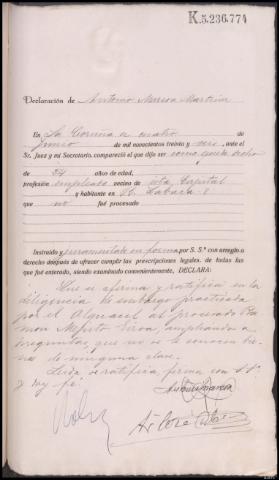 K.5.236.774
Declaración de Antonio Murcia Martín
En La Coruña a cuatro de
Junio de mil novecientos treinta y seis, ante el
Sr. Juez y mi Secretario, compareció el que dijo ser como queda dicho
de 34 años de edad,
profesión empleado vecino de esta Capital
y habitante en
que no fué procesado
Instruído y juramentado en forma por S. Sª con arreglo a
derecho después de ofrecer cumplir las prescripciones legales, de todas las
que fué enterado, siendo examinado convenientemente, DECLARA:
Que se afirma y ratifica en la
diligencia de embargo practicada
por el Alguacil al procesado Ra-
mon ampliando a
preguntas, que no se le conocen bie-
nes de ninguna clase.
Leida se ratifica, firma con S.Sª
y doy fé.